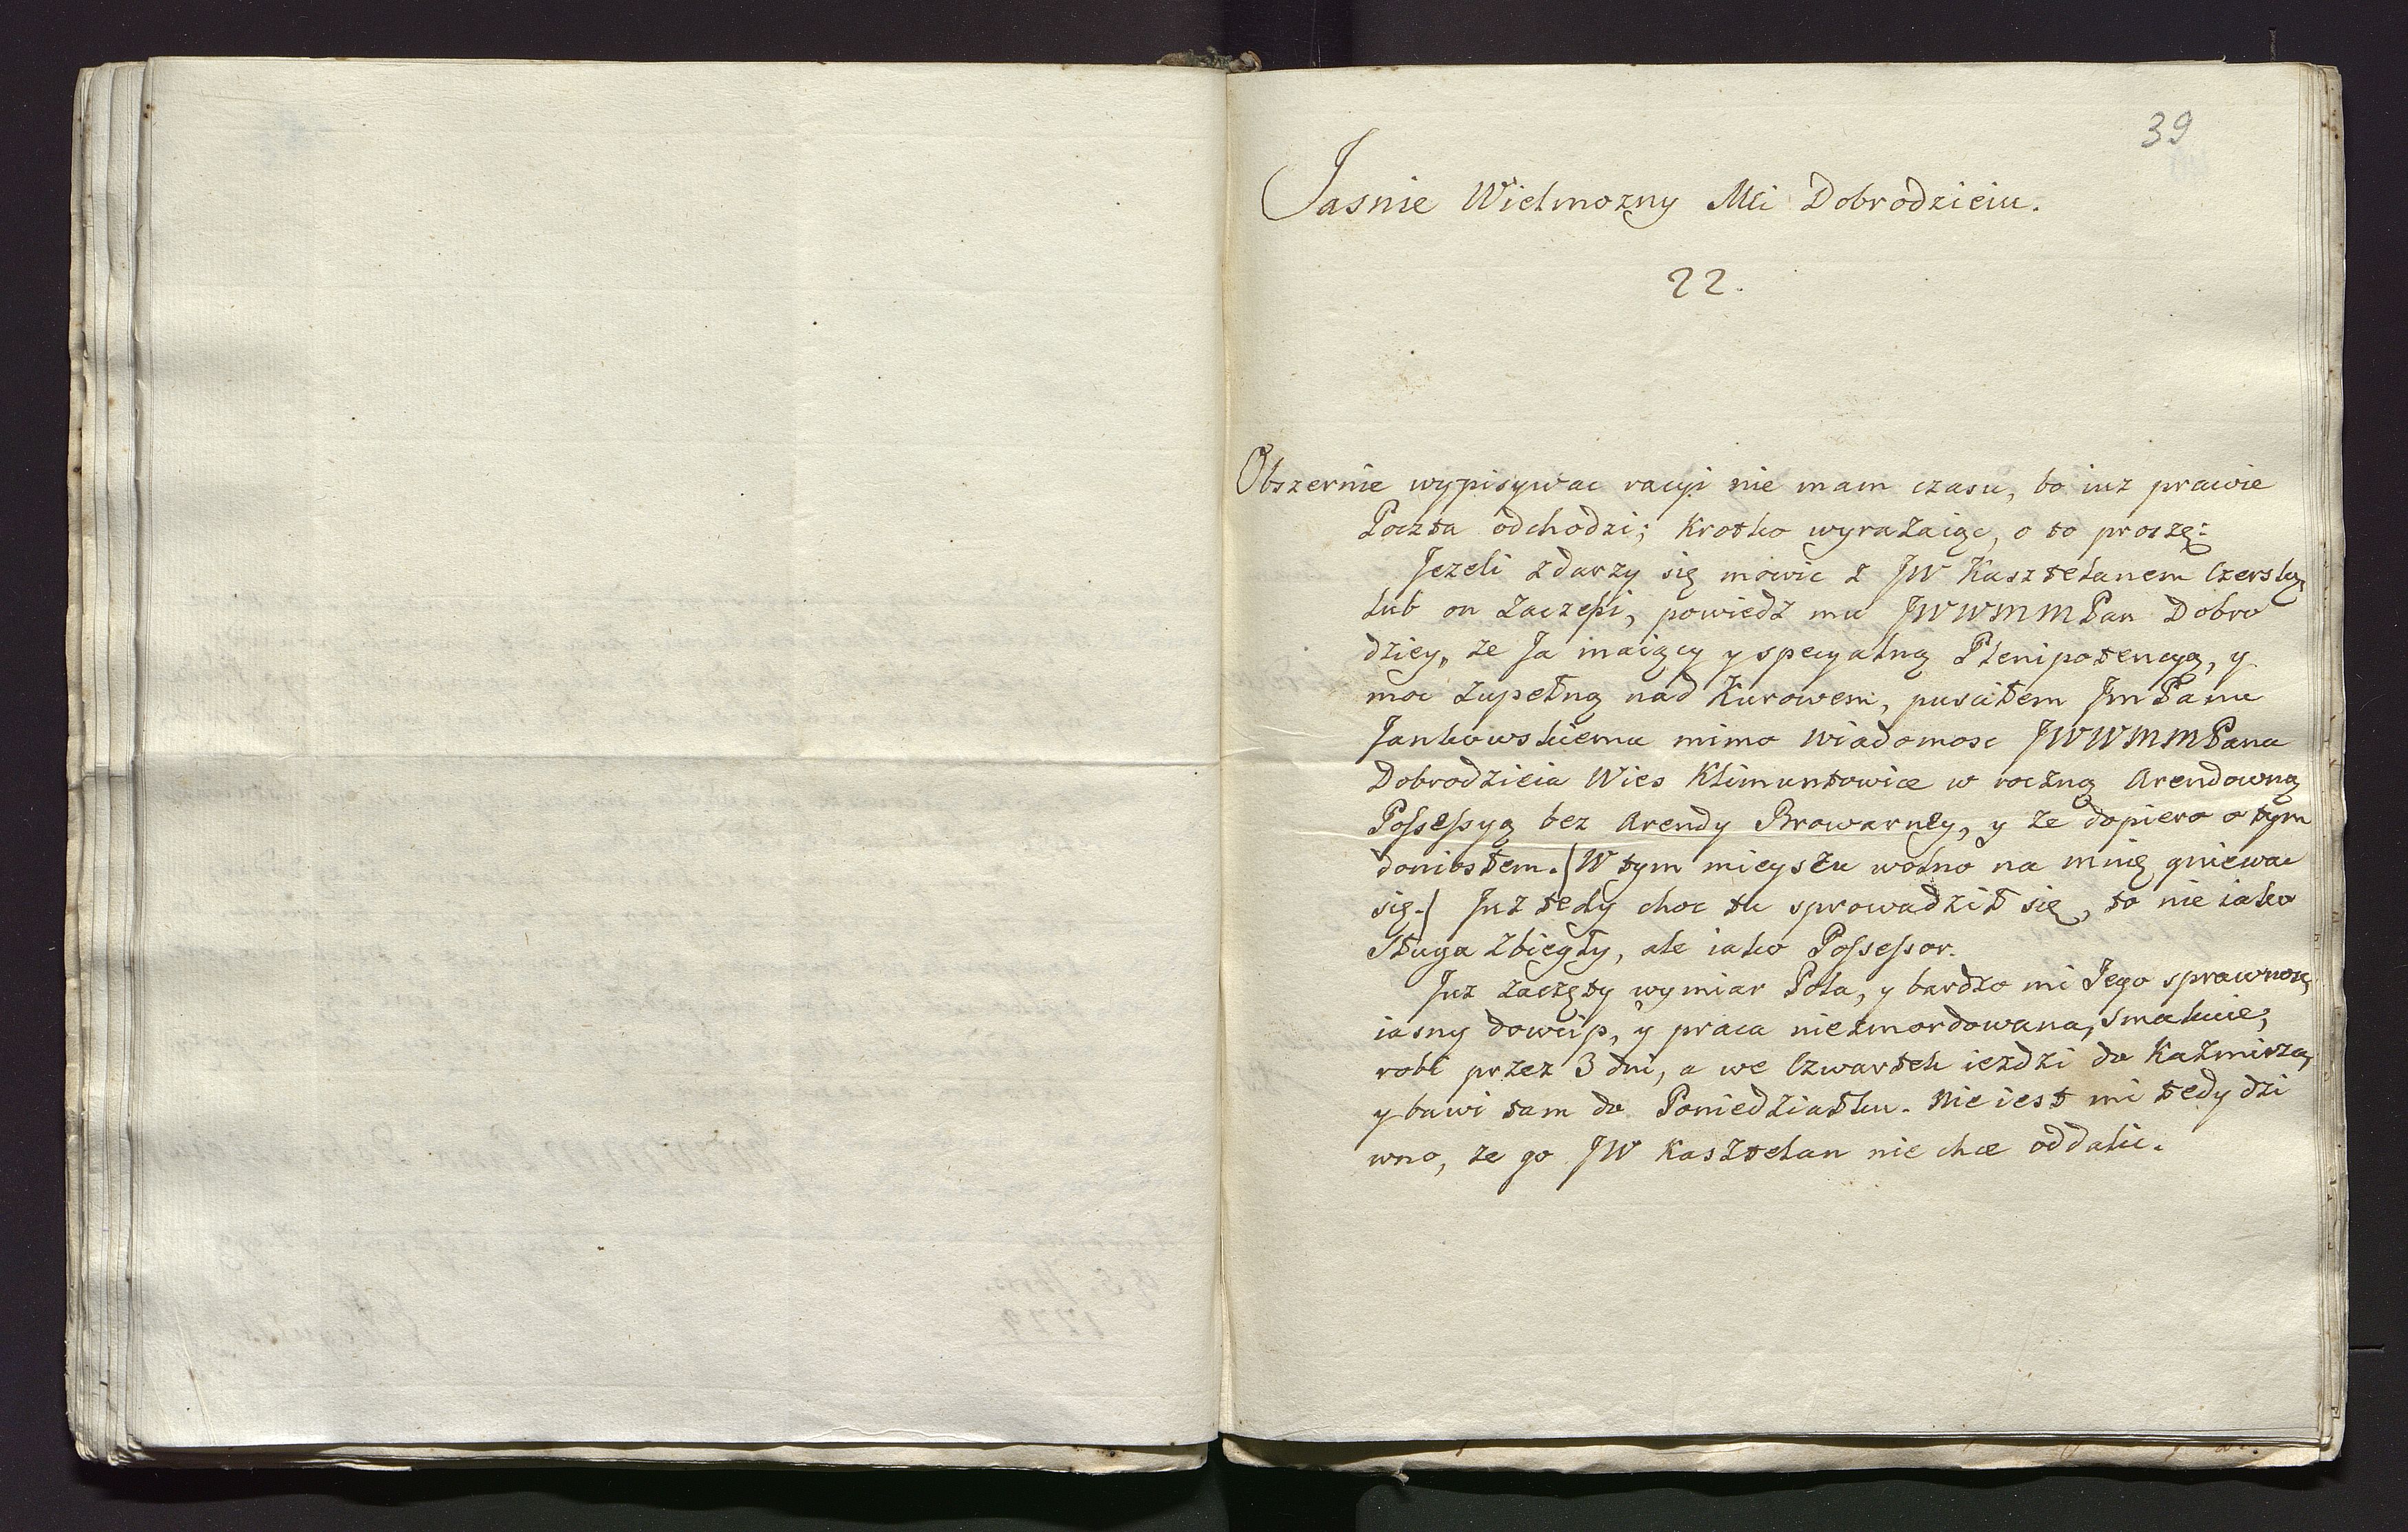 39
Jasnie Wielmozny Mci Dobrodzieiu.
22.
Obszernie wypisywac racyi nie mam czasu, bo iuz prawie
Poczta odchodzi; Krotko wyrażaiąc, o to proszę:
Jezeli zdarzy się mowic z JW Kasztelanem Czerskį
lub on zaczepi, powiedz mu JWWMMPan Dobro
dziey, ze Ja maiący y specyalną Plenipotencyą, y
moc zupełną nad Kurowem, pusciłem Jm Panu
Jankowskiemu mimo wiadomosc JWWMMPana
Dobrodzieia Wies Klimuntowice w roczną Arendowną
Poſseſsyą bez Arendy Browarney, y ze dopiero o tym
doniosłem. /W tym mieyscu wolno na mnię gniewac
się./ Juz tedy choc tu sprowadził się, to nie iako
sługa zbiegły, ale iako Poſseſsor.
Juz zaczęty wymiar Pola, y bardzo mi Jego sprawnosc,
iasny dowcip, y praca niezmordowana, smakuie;
robi przez 3 dni, a we Czwartek iezdzi do Kazmirza,
y bawi tam do Poniedziałku. Nie iest mi tedy dzi
wno, ze go JW Kasztelan nie chce oddalic.